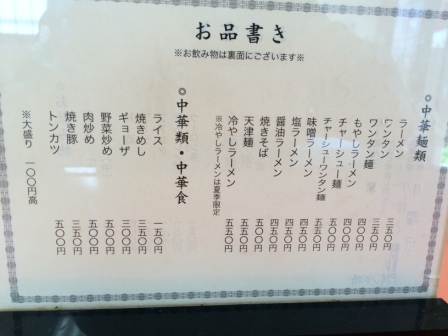 お品書き
※お飲み物は裏面にございます※
◎中華麺類
ラーメン 三五〇円
ワンタン 三五〇円
ワンタン麺 四〇〇円
もやしラーメン 四〇〇円
チャーシュー麺 四五〇円
チャーシューワンタン麺 五〇〇円
味噌ラーメン 四五〇円
塩ラーメン 四五〇円
醤油ラーメン 四五〇円
焼きそば 四五〇円
天津麺 五五〇円
冷やしラーメン 五五〇円
※冷やしラーメンは夏季限定
◎中華類・中華食
ライス 一五〇円
焼きめし 三五〇円
ギョーザ 三〇〇円
野菜炒め 三五〇円
肉炒め 五〇〇円
焼き豚 五〇〇円
トンカツ 五〇〇円
※大盛り 一〇〇円高